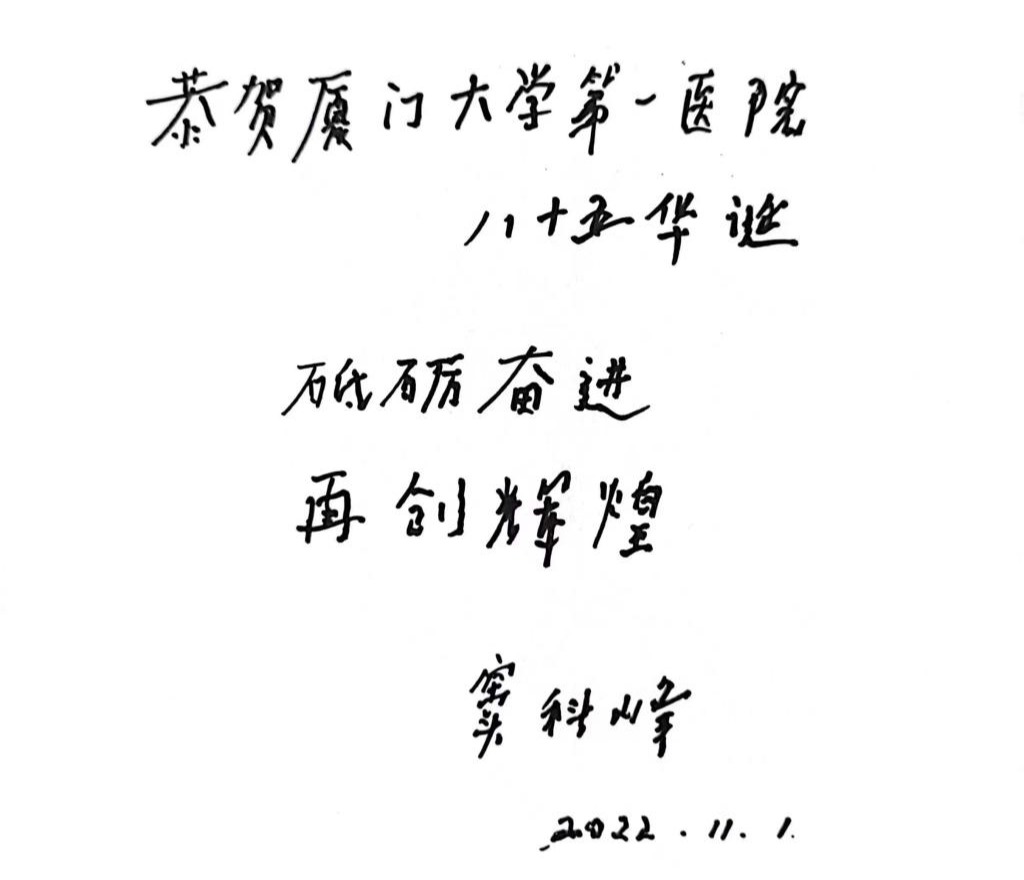 恭贺厦门大学第一医院
八十五华诞
砥砺奋进
再创辉煌
窦科峰
2022.11.1.